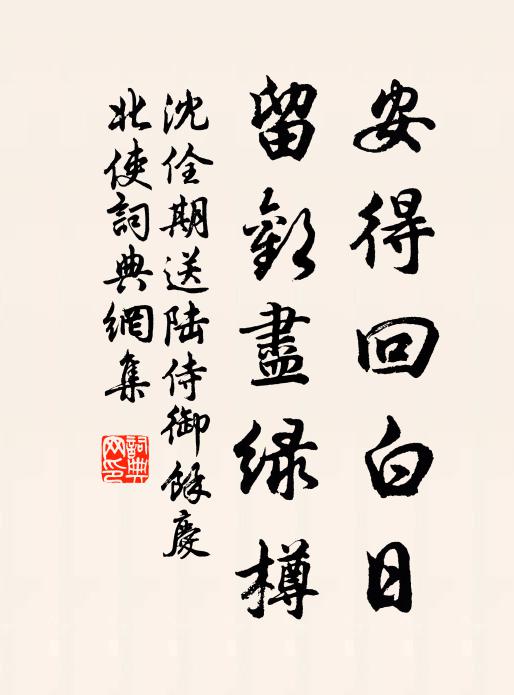 安得回白日
留歡盡綠樽
沈佺期送陸侍御餘慶
北使詞典網集
詞典网印